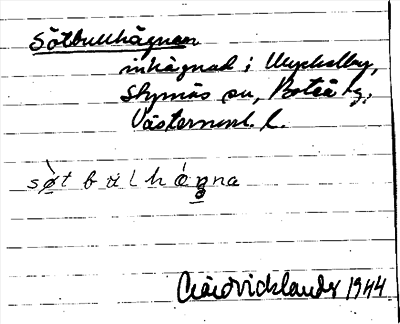 Sötbullhägnan
inhägnad i Myckelby,
Skymnäs su, Boteå sg,
Västernorrl. l.
söt bulhägna
1944